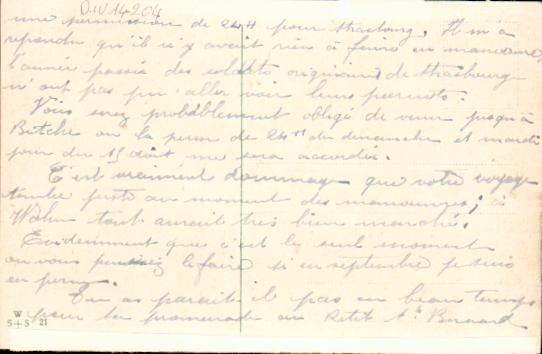 O.IV 14204
une permission de 24 H pour Strasbourg. Il m'a
répondu qu'il n'y avait rien à faire en manœuvre,
l'année passée des soldats originaires de Strasbourg
n'ont pas pu aller voir leurs parents.
Vous serez probablement obligé de venir jusqu'à
Bitche ou la perm de 24 H du dimanche et mardi
jour du 15 août me sera accordée.
C'est vraiment dommage que votre voyage
tombe juste au moment des manœuvres; à
tout aurait très bien marché.
Evidemment que c'est le seul moment
ou vous pensiez le faire si en septembre je suis
en perm.
Tu as parait il pas eu beau temps
pour ta promenade au Petit St Bernard
W
S+S 21